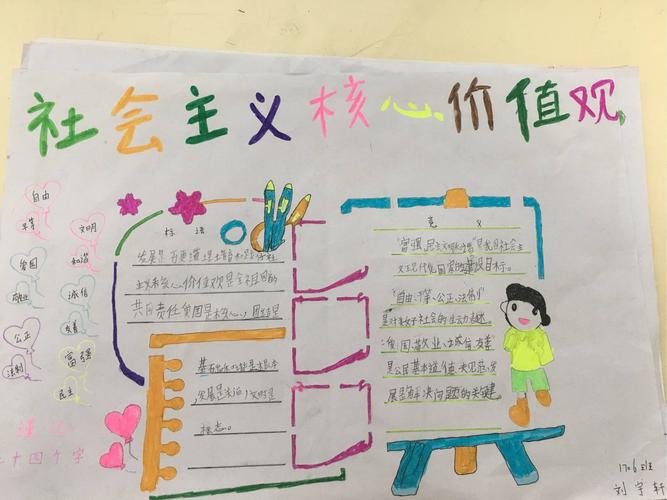 社会主义核心价值观
自由
平等
文明
爱国
和谐
敬业
诚信
公正
友善
法制
富强
民主
谨记
二十四个字
标语
发展是
主义核心价值观是全祖国的
共同责任爱国是核心，团结是
基石
发展是
标志。
意义
"富强、民主文明和谐"是我国社会主
义现代化国家的建设目标。
"自由、平等、公正、法制"
是对美好社会的生动表述
"爱国、敬业、诚信、友善"
是公民基本道德
展是解决问题的关键
1706班
刘宇轩